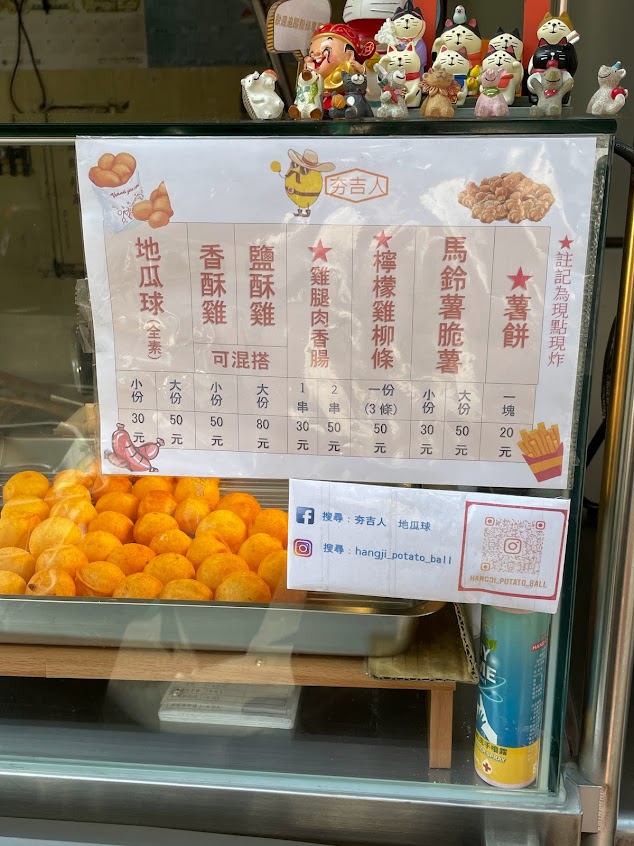 歡迎追蹤粉絲專頁
夯吉人
★註記為現點現炸
★薯餅
一塊
20元
馬鈴薯脆薯
小份 大份
30元 50元
★檸檬雞柳條
一份(3條)
50元
★雞腿肉香腸
1串 2串
30元 50元
鹽酥雞
香酥雞
可混搭
小份 大份
50元 80元
地瓜球(全素)
小份 大份
30元 50元
搜尋:夯吉人 地瓜球
搜尋:hangji_potato_ball
HANGJI_POTATO_BALL